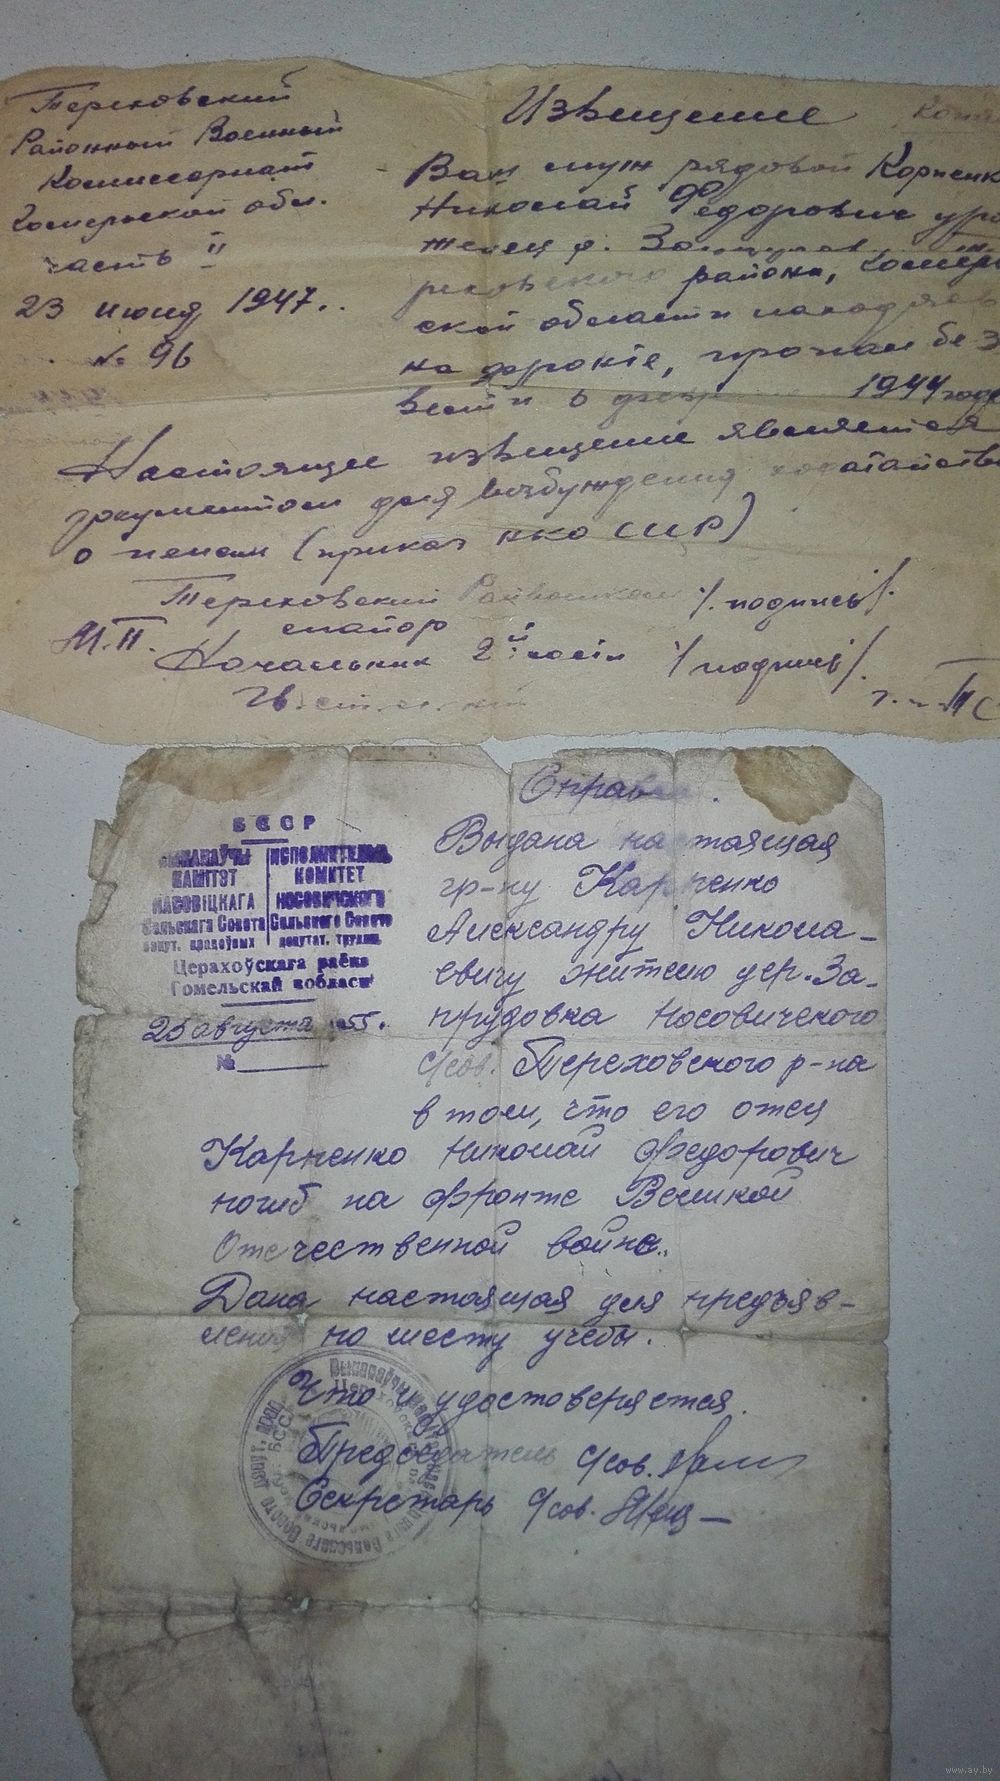 Тереховский
Районный Военный
Комиссариат
Гомельской обл.
часть II
23 июня 1947.
№ 96
Извещение
Ваш муж рядовой Корпенк
Николай Федорович уро
женец д.
района, Гомель
ской области находясь
на фронте, пропал без
вести в 1944 года
Настоящее извещение является
документом для возбуждения ходатайства
о пенсии (приказ НКО СССР)
Тереховский Райвоенком /подпись/.
майор
М.П. Начальник 2й части /подпись/.
Справка.
БССР
ВЫКАНАЎЧЫ
КАМІТЭТ
НАСОВІЦКАГА
Сельскага Совета
дэпут. працоўных
ИСПОЛНИТЕЛЬН.
КОМИТЕТ
НОСОВИЧСКОГО
Сельского Совета
депутат. трудящ.
Церахоўскага раёна
Гомельскай вобласці
25 августа 1955.
№
Выдана настоящая
гр-ну Карпенко
Александру Никола-
евичу жителю дер. За-
прудовка Носовичского
с/сов. Тереховского р-на
в том, что его отец
Карпенко Николай Федорович
погиб на фронте Великой
Отечественной войне.
Дана настоящая для предъяв-
ления по месту учебы.
Что и удостоверяется.
Председатель с/сов.
Секретарь с/сов.
www.ay.by